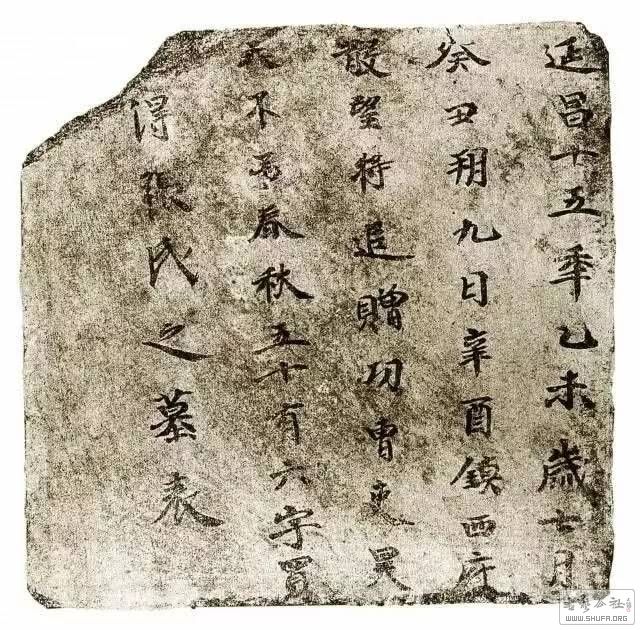 延昌十五秊乙未歲七月
癸丑朔九日辛酉鎮西府
散望將追贈功曹吏昊
天不弔春秋五十有六字買
得張氏之墓表
书艺公社
WWW.SHUFA.ORG